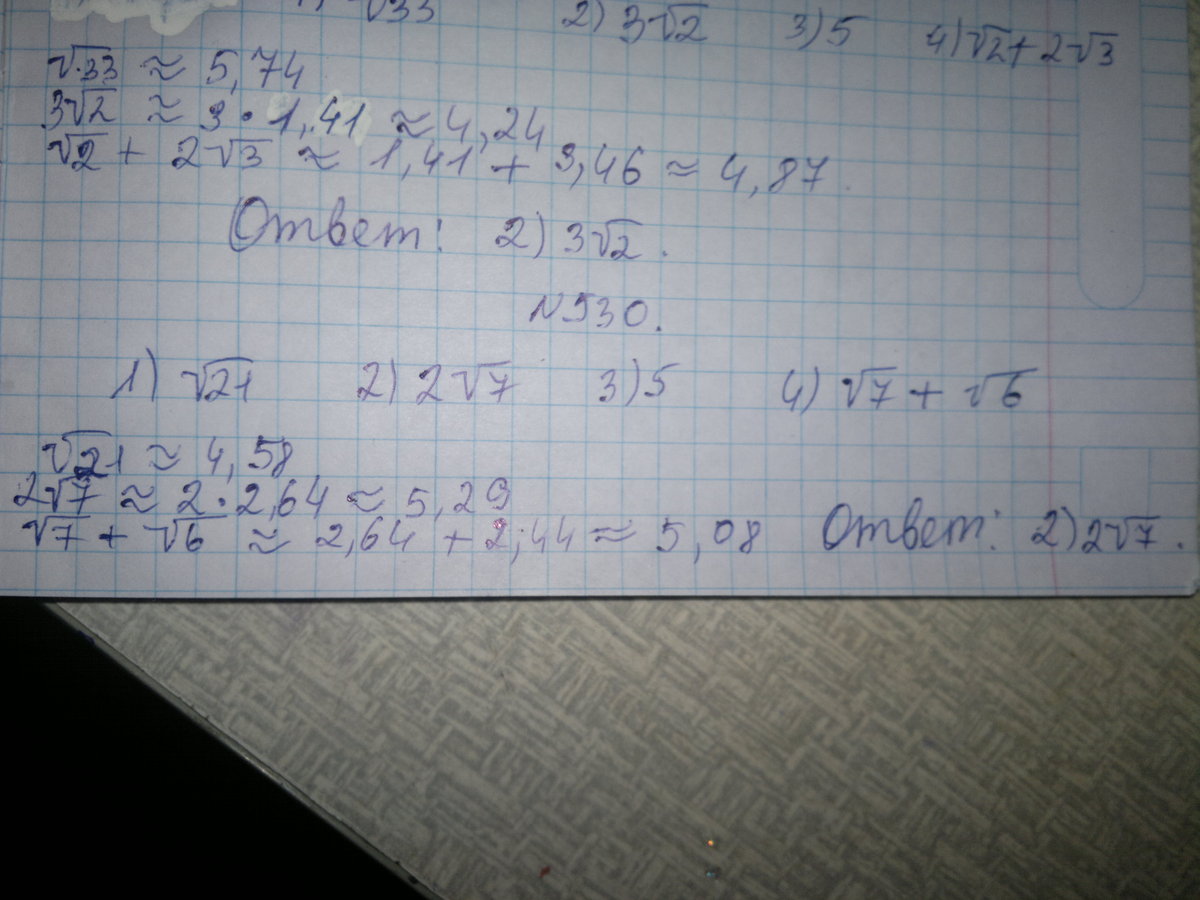 1) √33 2) 3√2 3) 5 4) √2 + 2√3
√33 ≈ 5,74
3√2 ≈ 3 · 1,41 ≈ 4,24
√2 + 2√3 ≈ 1,41 + 3,46 ≈ 4,87.
Ответ: 2) 3√2.
N930.
1) √21 2) 2√7 3) 5 4) √7 + √6
√21 ≈ 4,58
2√7 ≈ 2 · 2,64 ≈ 5,29
√7 + √6 ≈ 2,64 + 2,44 ≈ 5,08 Ответ: 2) 2√7.